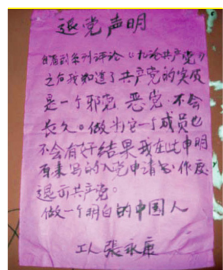 退党声明
自看到系列评论《九论共产党》
之后我知道了共产党的发展
是一个邪党 恶党 不会
长久。做为它一个成员也
不会有好结果 我在此申明
有素写的入党申请书作废
退前共产党。
做一个明白的中国人
工人 张永康